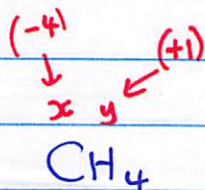 (-4) (+1)
x y
CH₄